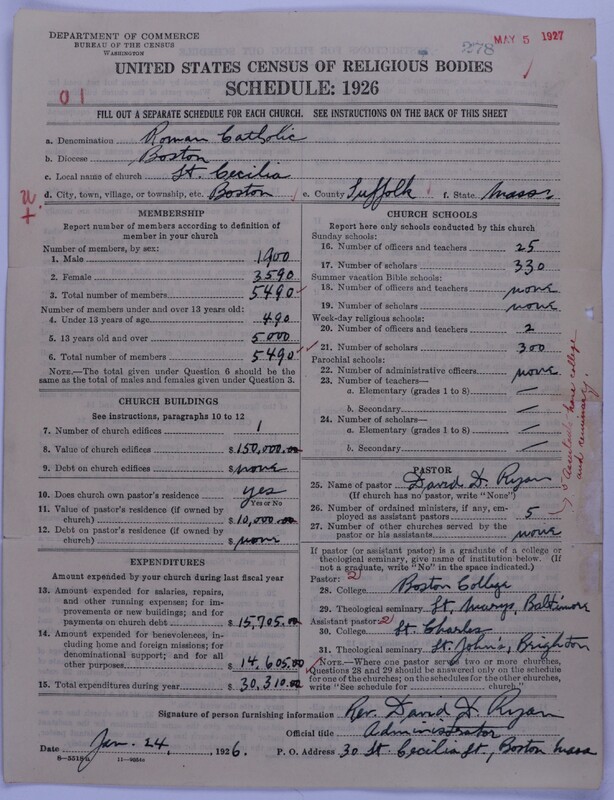 DEPARTMENT OF COMMERCE
BUREAU OF THE CENSUS
WASHINGTON
278
MAY 5 1927
UNITED STATES CENSUS OF RELIGIOUS BODIES
SCHEDULE: 1926
01
FILL OUT A SEPARATE SCHEDULE FOR EACH CHURCH. SEE INSTRUCTIONS ON THE BACK OF THIS SHEET
a. Denomination Roman Catholic
b. Diocese Boston
c. Local name of church St. Cecilia
d. City, town, village, or township, etc. Boston e. County Suffolk f. State Mass
MEMBERSHIP
Report number of members according to definition of
member in your church
Number of members, by sex:
1. Male 1900
2. Female 3590
3. Total number of members 5490
Number of members under and over 13 years old:
4. Under 13 years of age 490
5. 13 years old and over 5000
6. Total number of members 5490
NOTE.—The total given under Question 6 should be the
same as the total of males and females given under Question 3.
CHURCH BUILDINGS
See instructions, paragraphs 10 to 12
7. Number of church edifices 1
8. Value of church edifices $150,000.00
9. Debt on church edifices $none
10. Does church own pastor's residence yes
Yes or No
11. Value of pastor's residence (if owned by
church) $10,000.00
12. Debt on pastor's residence (if owned by
church) $none
EXPENDITURES
Amount expended by your church during last fiscal year
13. Amount expended for salaries, repairs,
and other running expenses; for im-
provements or new buildings; and for
payments on church debt $15,705.00
14. Amount expended for benevolences, in-
cluding home and foreign missions; for
denominational support; and for all
other purposes $14,605.00
15. Total expenditures during year $30,310.00
CHURCH SCHOOLS
Report here only schools conducted by this church
Sunday schools:
16. Number of officers and teachers 25
17. Number of scholars 330
Summer vacation Bible schools:
18. Number of officers and teachers none
19. Number of scholars none
Week-day religious schools:
20. Number of officers and teachers 2
21. Number of scholars 300
Parochial schools:
22. Number of administrative officers none
23. Number of teachers—
a. Elementary (grades 1 to 8) —
b. Secondary —
24. Number of scholars—
a. Elementary (grades 1 to 8) —
b. Secondary —
PASTOR
25. Name of pastor David D. Ryan
(If church has no pastor, write "None")
26. Number of ordained ministers, if any, em-
ployed as assistant pastors 5
27. Number of other churches served by the
pastor or his assistants none
have college
and seminary.
If pastor (or assistant pastor) is a graduate of a college or
theological seminary, give name of institution below. (If
not a graduate, write "No" in the space indicated.)
Pastor: 2
28. College Boston College
29. Theological seminary St. Mary's, Baltimore
Assistant pastor: 2
30. College St. Charles
31. Theological seminary St. John's, Brighton
NOTE.—Where one pastor serves two or more churches,
Questions 28 and 29 should be answered only on the schedule
for one of the churches; on the schedules for the other churches,
write "See schedule for church."
Signature of person furnishing information Rev. David D. Ryan
Official title Administrator
Date Jan. 24, 1926. P. O. Address 30 St. Cecilia St., Boston Mass